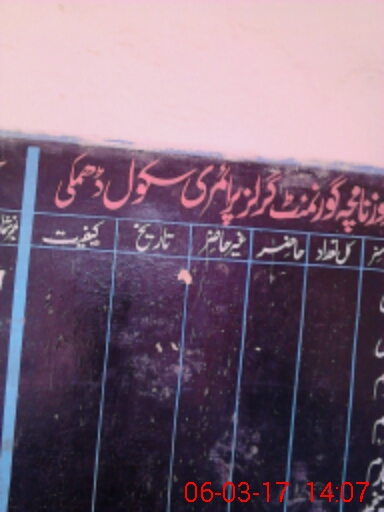 روزنامچہ گورنمنٹ گرلز پرائمری سکول ڈھمکی
کل تعداد حاضر غیر حاضر تاریخ کیفیت
06-03-17 14:07